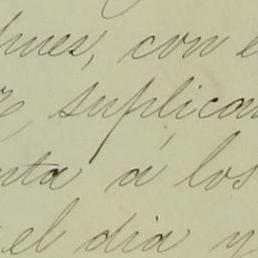 pues, con e
suplica
nta á los
el dia y